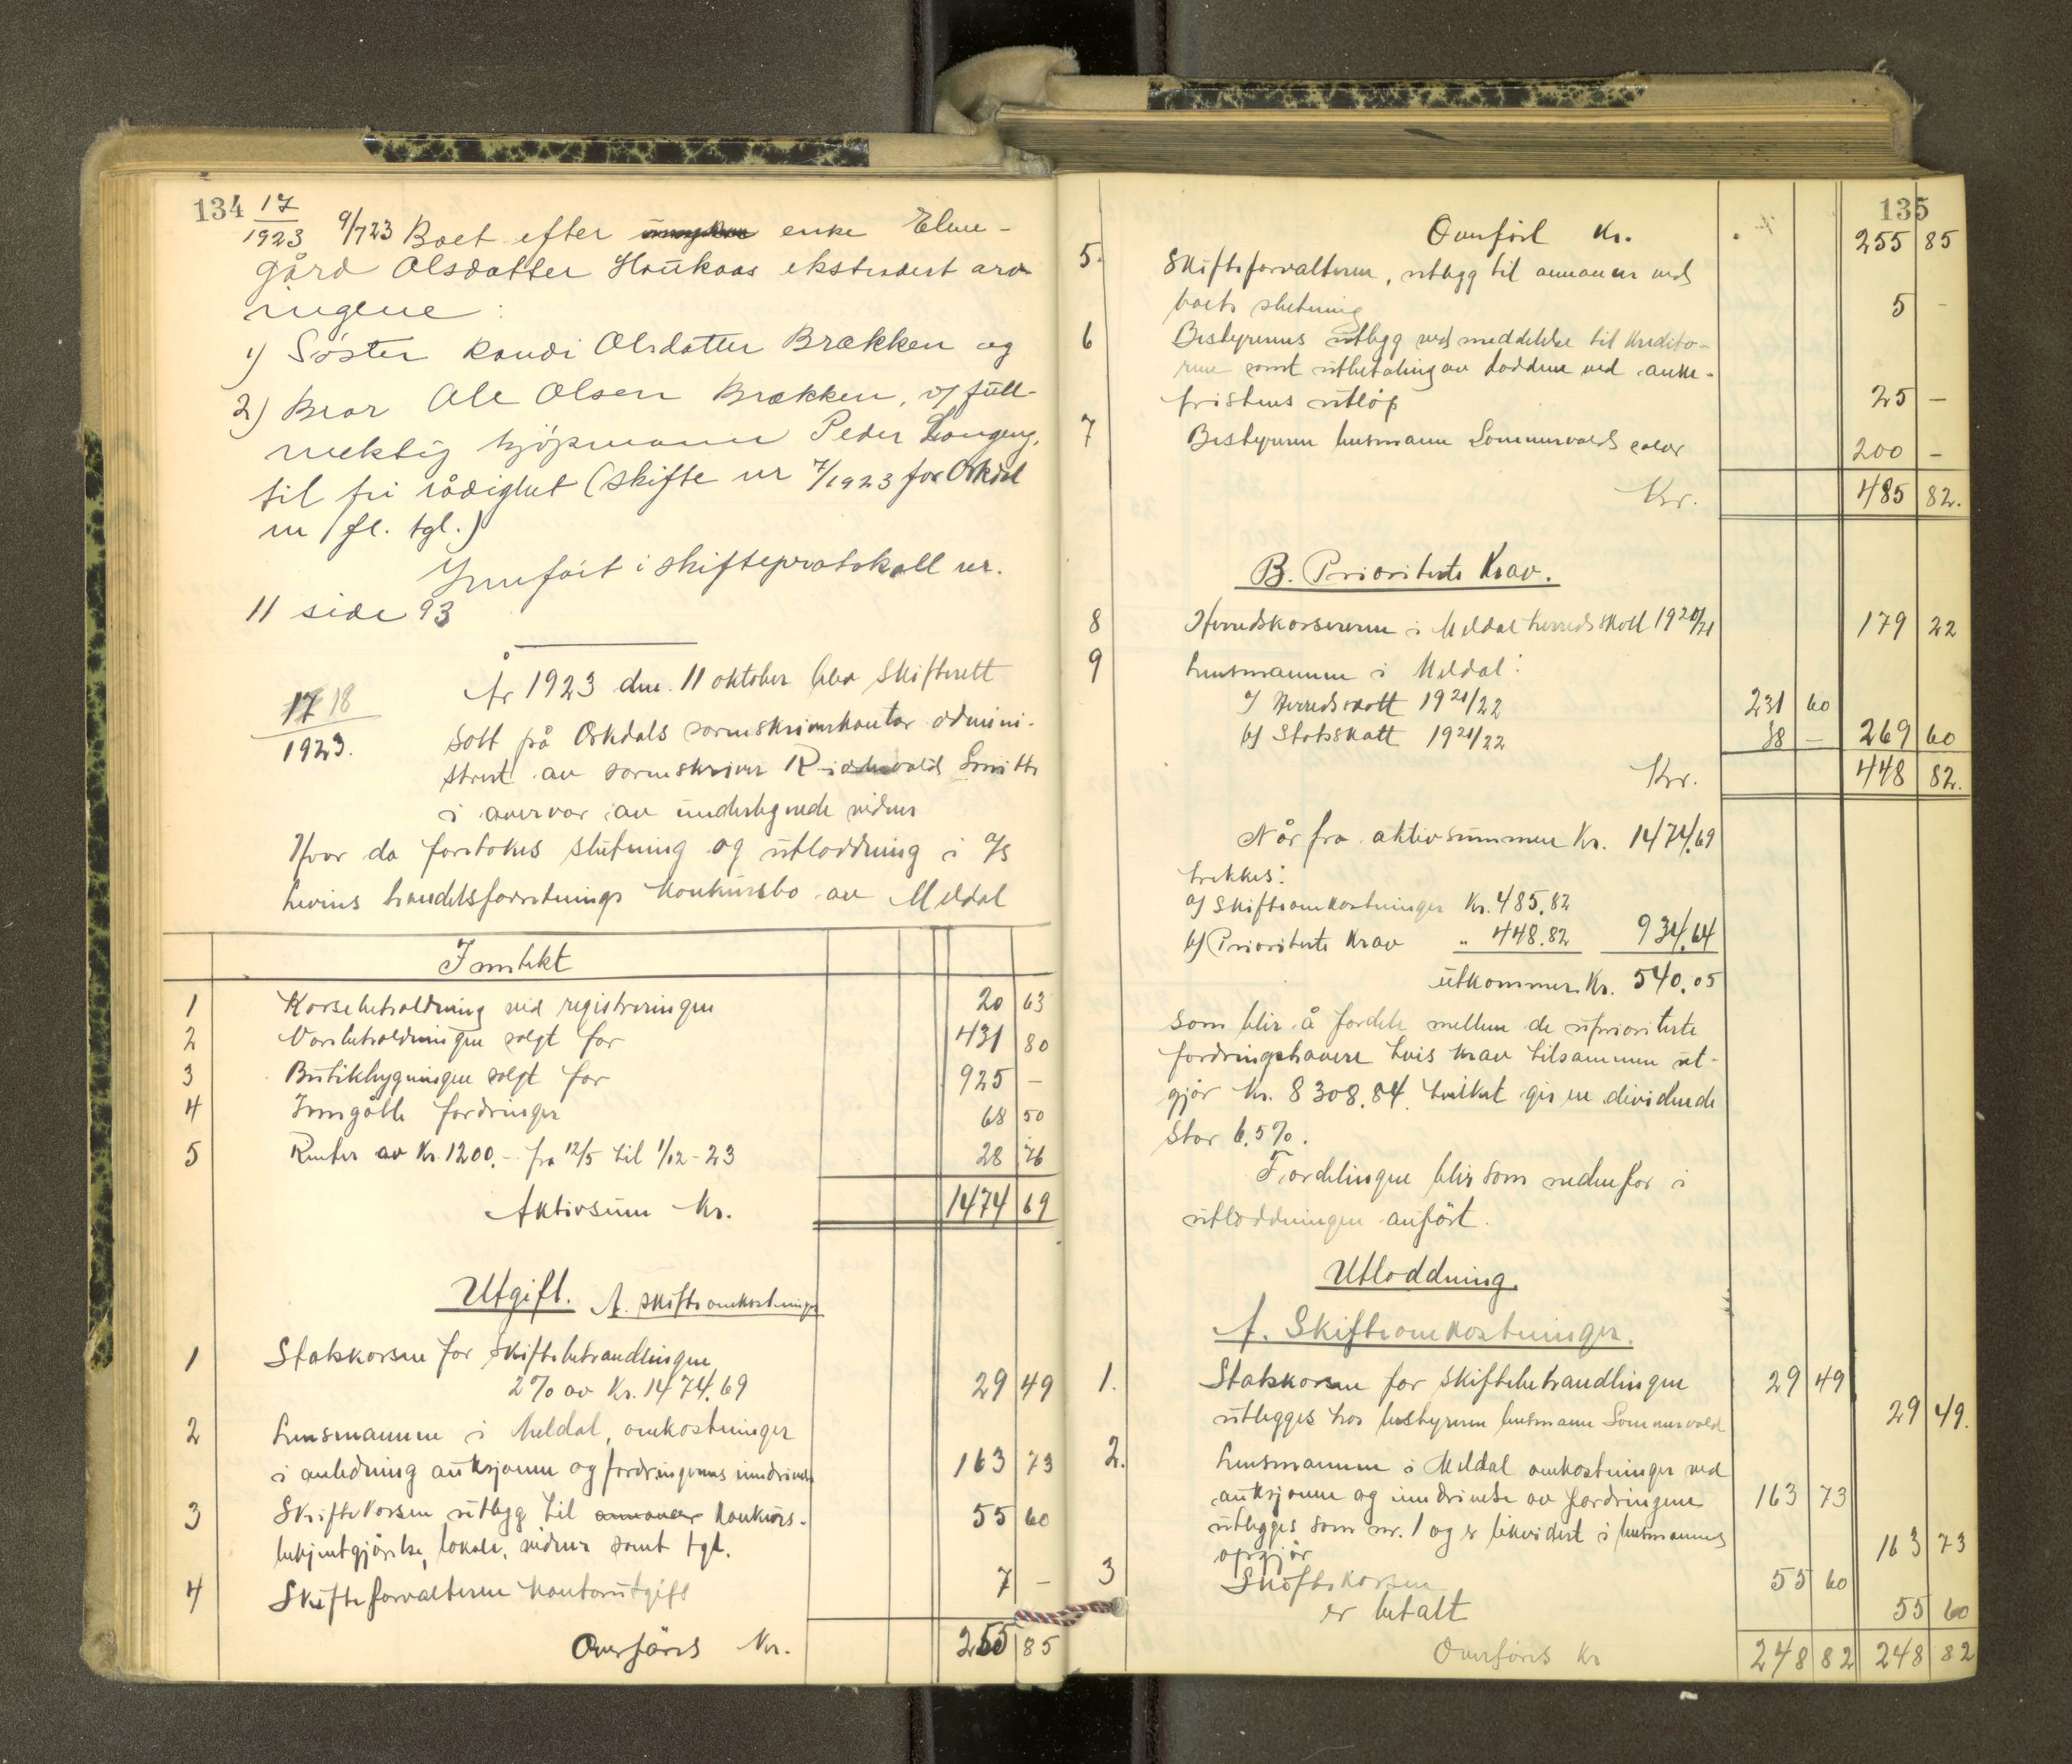 134
17
1923
9/7 23 Boet efter enke Elen-
gård Olsdatter Haukaas ekstradert arv-
ingene:
1) Søster Randi Olsdatter Brækken og
2) Bror Ole Olsen Brækken, v/ full-
mektig kjøpmann Peder Langeng,
til fri rådighet (skifte nr 7/1923 for Orkdal
m/fl. tgl.)
Innført i skifteprotokoll nr.
11 side 93
17 18
1923.
År 1923 den 11 oktober blev skifterett
satt på Orkdals sorenskriverkontor admini-
strert av sorenskriver Smith
i overvær av undertegnede vidner
Hvor da foretokes slutning og utlodning i a/s
Levins handelsforretnings konkursbo av Meldal
Inntekt
1 Kassebeholdning ved registreringen 20 63
2 Varebeholdningen solgt for 431 80
3 Butikbygningen solgt for 925 –
4 Inngåtte fordringer 68 50
5 Renter av Kr. 1200.- fra 12/5 til 1/12-23 28 76
Aktivsum Kr. 1474 69
Utgift. A. Skifteomkostninger
1 Statskassen for skiftebehandlingen
2% av Kr. 1474.69 29 49
2 Lensmannen i Meldal, omkostninger
i anledning auksjonen og fordringenes inndrivelse 163 73
3 Skiftekassen utlegg til annonser konkurs-
bekjentgjørelse, lokale, vidner samt tgl. 55 60
4 Skifteforvalteren kontorutgift 7 –
Overføres Kr. 255 85
135
Overført Kr. 255 85
5. Skifteforvalteren, utlegg til annonser ved
boets slutning 5 –
6 Bestyrerens utlegg ved meddelelse til kredito-
rene samt utbetaling av loddene ved anke-
fristens utløp 25 –
7 Bestyreren lensmann Sommervolds salær 200 –
Kr. 485 82.
B. Prioriterte Krav.
8 Herredskassereren i Meldal herredsskatt 1920/21 179 22
9 Lensmannen i Meldal:
a) Herredsskatt 1921/22 231 60
b) Statsskatt 1921/22 38 – 269 60
Kr. 448 82.
Når fra aktivsummen Kr. 1474.69
trekkes:
a) Skifteomkostninger Kr. 485.82
b) Prioriterte Krav " 448.82 934.64
utkommer Kr. 540.05
som blir å fordele mellem de uprioriterte
fordringshavere hvis krav tilsammen ut-
gjør Kr. 8308.84. hvilket gir en dividende
stor 6.5%.
Fordelingen blir som nedenfor i
utloddningen anført.
Utloddning.
A. Skifteomkostninger.
1. Statskassen for skiftebehandlingen 29 49
utlegges hos bestyreren lensmann Sommervold 29 49.
2. Lensmannen i Meldal omkostninger ved
auksjonen og inndrivelse av fordringene 163 73
utlegges som nr. 1 og er likvidert i lensmannens
opgjør 163 73
3 Skiftekassen 55 60
er betalt 55 60
Overføres Kr 248 82 248 82